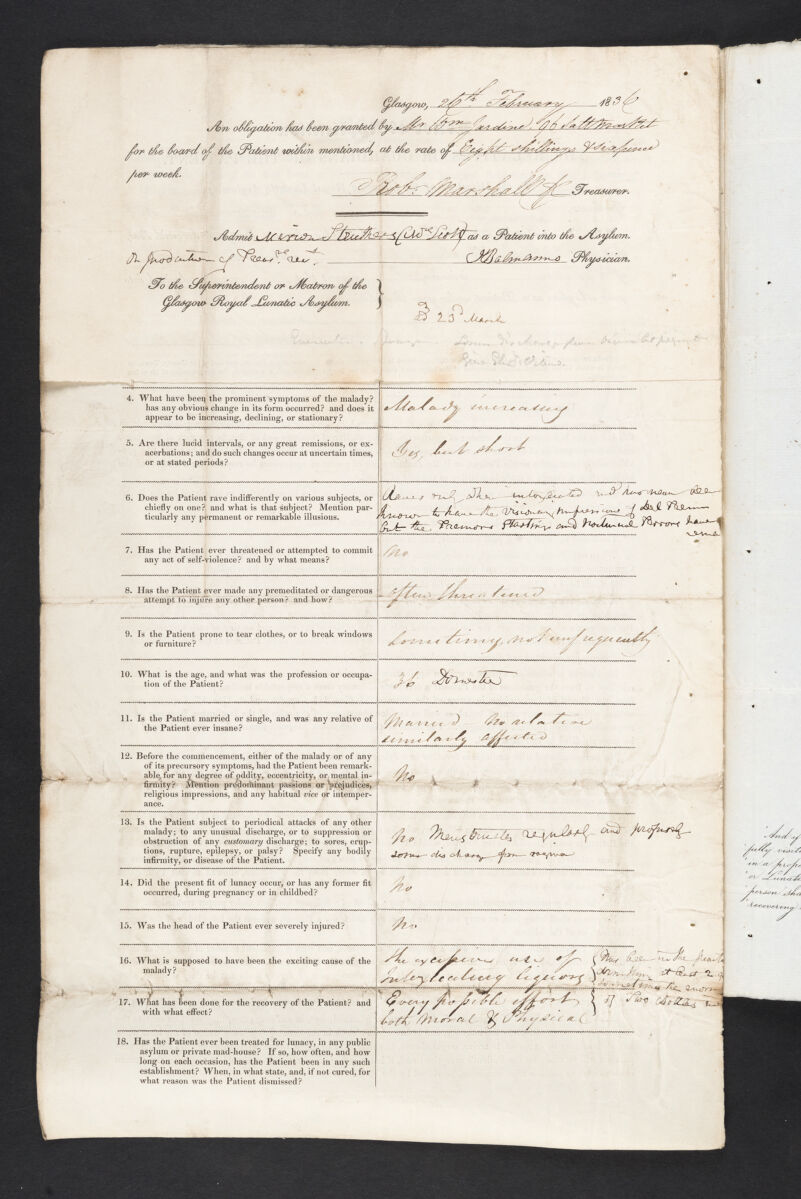 Glasgow, 26th February 1836
An obligation has been granted by Mr Wm Jardine, 90 Saltmarket
for the board of the Patient within mentioned, at the rate of Eight shillings & sixpence
per week.
Robt Marshall Treasurer.
Admit Merion Struthers (Mrs Scott) as a Patient into the Asylum.
On production of Treasrs rect. Balmanno Physician.
To the Superintendent or Matron of the
Glasgow Royal Lunatic Asylum.
23d March
4. What have been the prominent symptoms of the malady?
has any obvious change in its form occurred? and does it
appear to be increasing, declining, or stationary?
Malady increasing
5. Are there lucid intervals, or any great remissions, or ex-
acerbations; and do such changes occur at uncertain times,
or at stated periods?
Yes, but short
6. Does the Patient rave indifferently on various subjects, or
chiefly on one? and what is that subject? Mention par-
ticularly any permanent or remarkable illusions.
Raves only when intoxicated and has never been
known to have the visionary impressions of Del Trem
but the Tremors Startings and Nocturnal Terrors have
7. Has the Patient ever threatened or attempted to commit
any act of self-violence? and by what means?
No
8. Has the Patient ever made any premeditated or dangerous
attempt to injure any other person? and how?
often threatened
9. Is the Patient prone to tear clothes, or to break windows
or furniture?
Sometimes, not unfrequently
10. What is the age, and what was the profession or occupa-
tion of the Patient?
36 Domestic
11. Is the Patient married or single, and was any relative of
the Patient ever insane?
Married No relative
similarly affected
12. Before the commencement, either of the malady or of any
of its precursory symptoms, had the Patient been remark-
able, for any degree of oddity, eccentricity, or mental in-
firmity? Mention predominant passions or prejudices,
religious impressions, and any habitual vice or intemper-
ance.
No
13. Is the Patient subject to periodical attacks of any other
malady; to any unusual discharge, or to suppression or
obstruction of any customary discharge; to sores, erup-
tions, rupture, epilepsy, or palsy? Specify any bodily
infirmity, or disease of the Patient.
No Menstruates regularly and profusely
some discharge from vagina
14. Did the present fit of lunacy occur, or has any former fit
occurred, during pregnancy or in childbed?
No
15. Was the head of the Patient ever severely injured?
No
16. What is supposed to have been the exciting cause of the
malady?
The excessive use of
Intoxicating liquors
Has been in the
at least 2
sometimes the enorm
of Two Bottles
17. What has been done for the recovery of the Patient? and
with what effect?
Every possible effort
both Moral & Physical
18. Has the Patient ever been treated for lunacy, in any public
asylum or private mad-house? If so, how often, and how
long on each occasion, has the Patient been in any such
establishment? When, in what state, and, if not cured, for
what reason was the Patient dismissed?
And if
fully visit
in a prop
or Lunati
person sha
recovering